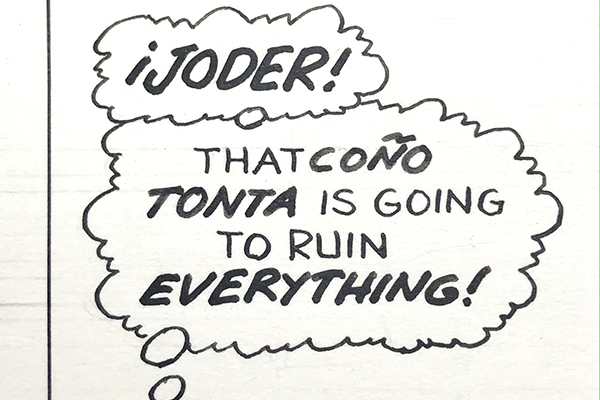 ¡JODER!
THAT COÑO
TONTA IS GOING
TO RUIN
EVERYTHING!